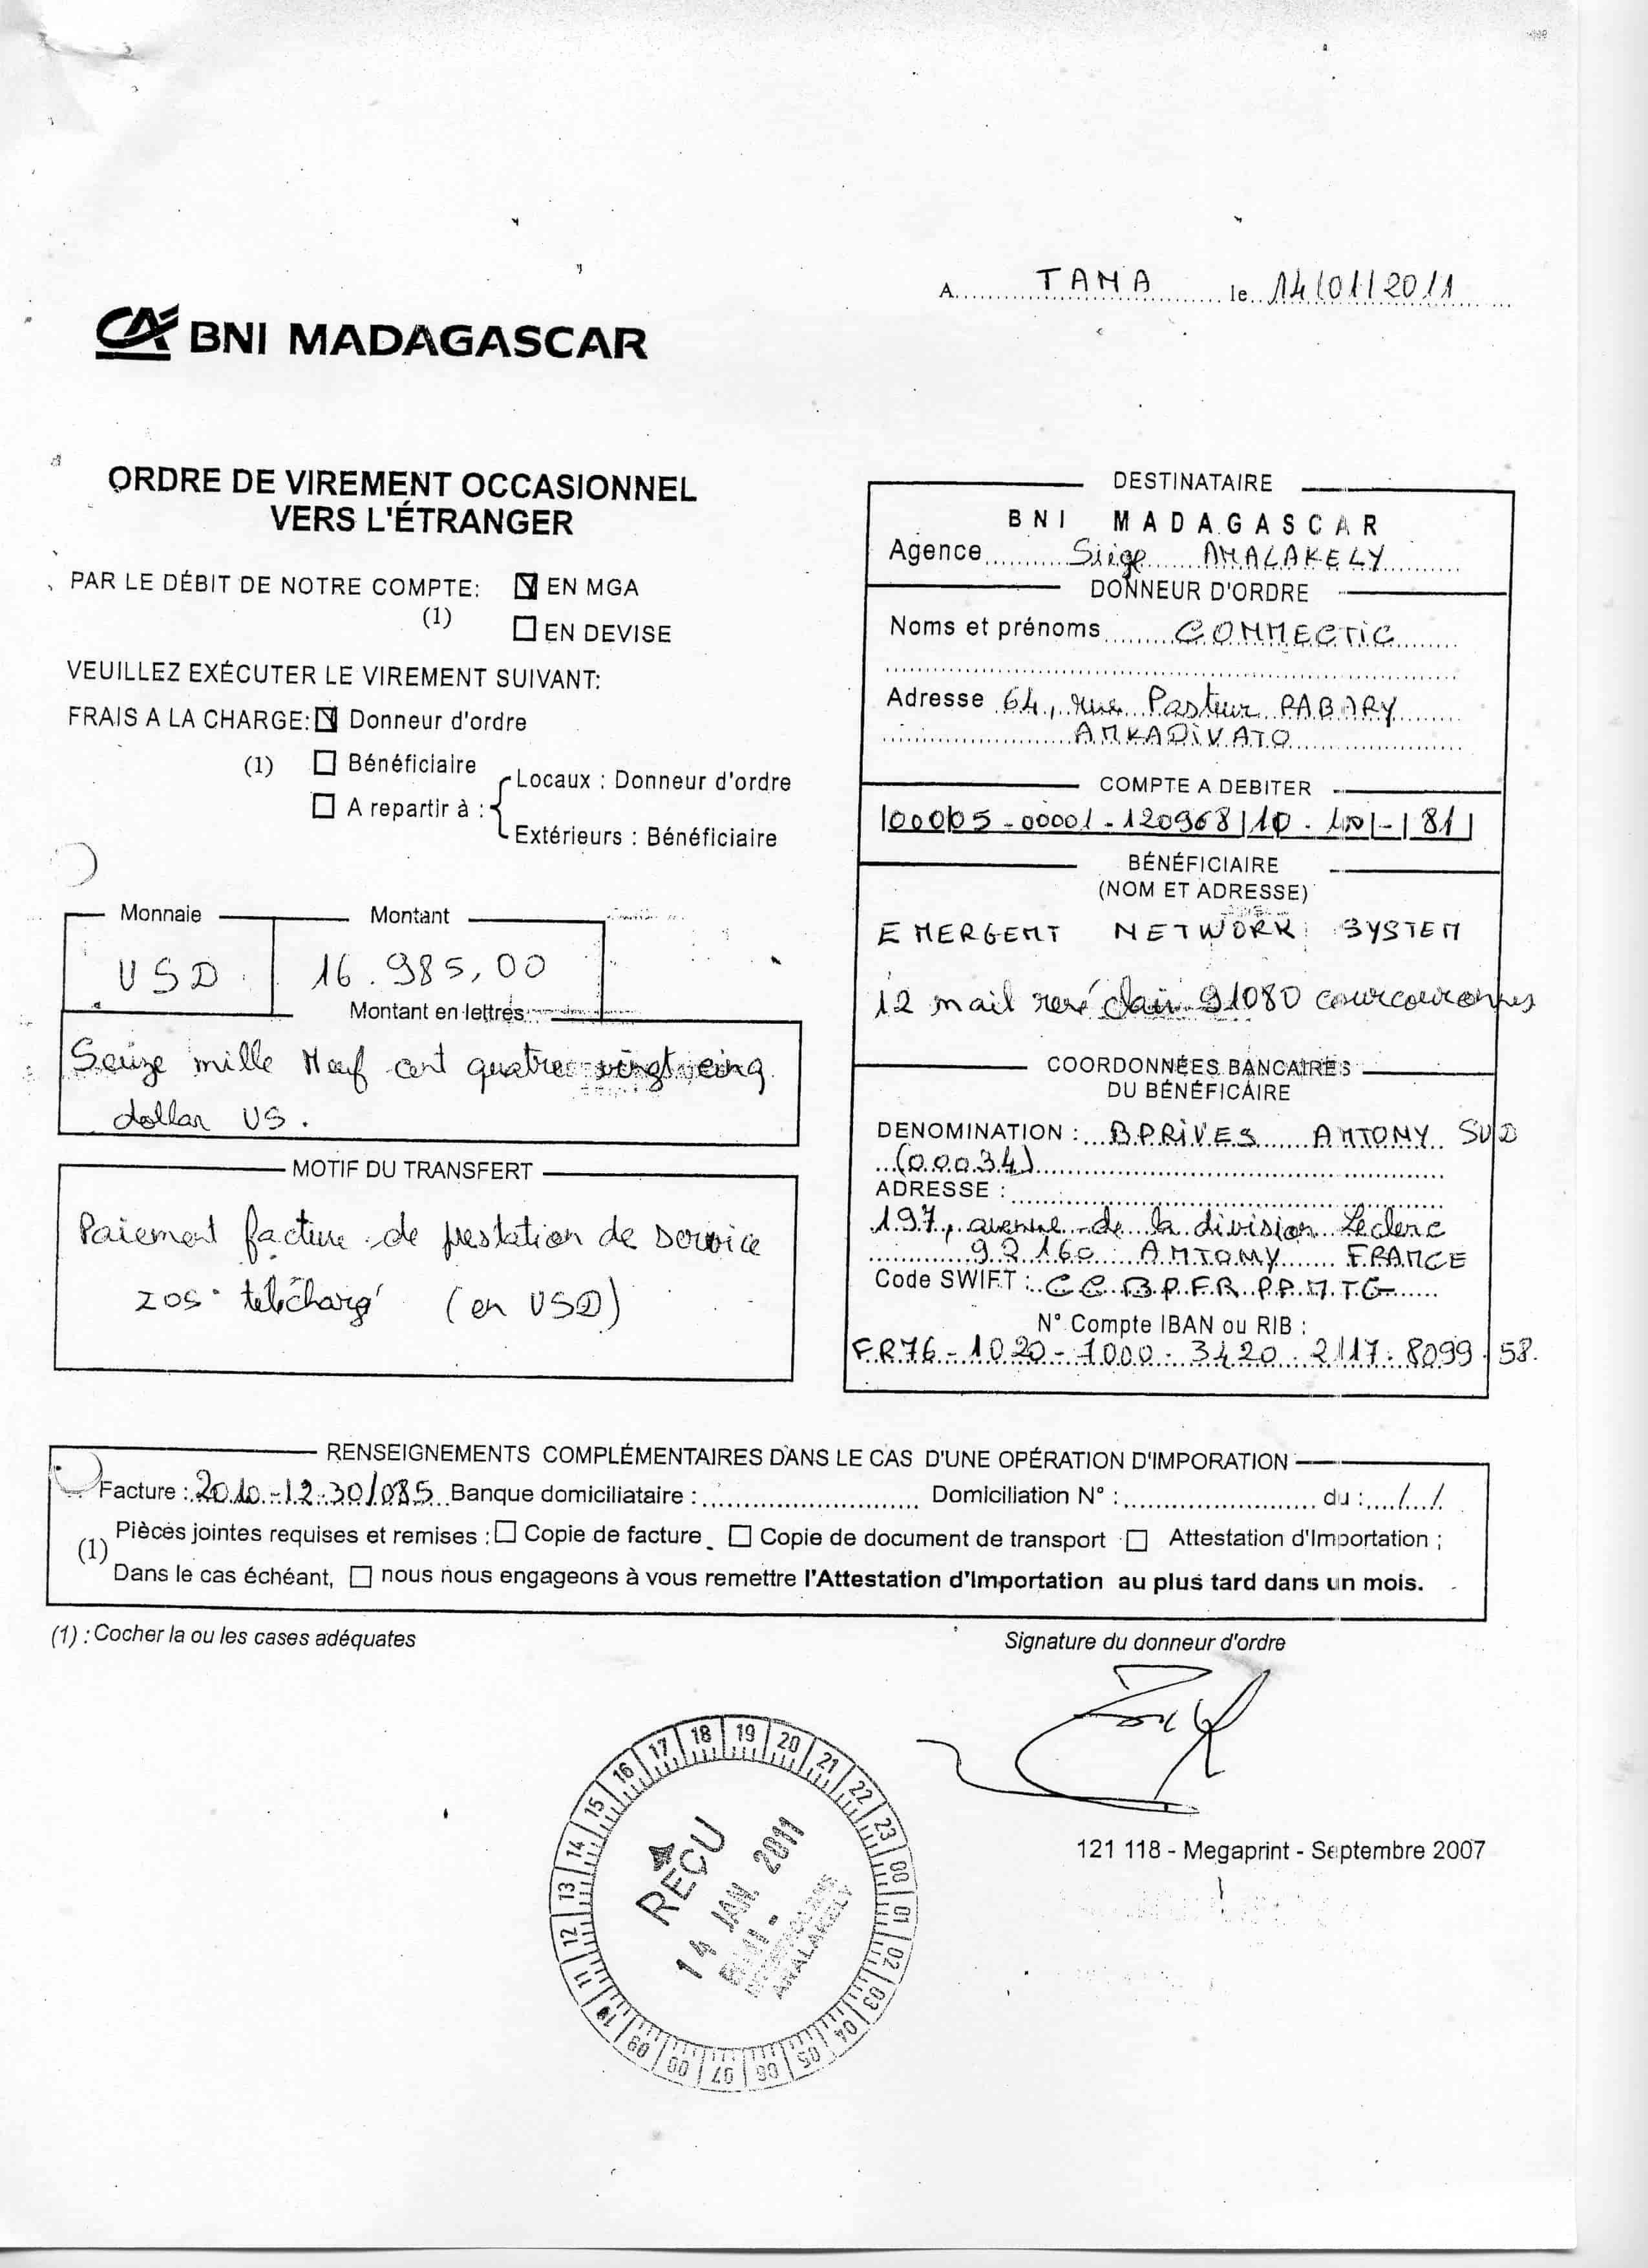 A TANA le 14/01/2011
CA BNI MADAGASCAR
ORDRE DE VIREMENT OCCASIONNEL
VERS L'ÉTRANGER
PAR LE DÉBIT DE NOTRE COMPTE: EN MGA
(1)
EN DEVISE
VEUILLEZ EXÉCUTER LE VIREMENT SUIVANT:
FRAIS A LA CHARGE: Donneur d'ordre
(1) Bénéficiaire
A repartir à :
Locaux : Donneur d'ordre
Extérieurs : Bénéficiaire
Monnaie Montant
USD 16.985,00
Montant en lettres
Seize mille Neuf cent quatre vingt cinq
dollar US.
MOTIF DU TRANSFERT
Paiement facture de prestation de service
(en USD)
DESTINATAIRE
BNI MADAGASCAR
Agence Siège ANALAKELY
DONNEUR D'ORDRE
Noms et prénoms CONNECTIC
Adresse 64, rue Pasteur RABARY
ANKADIVATO
COMPTE A DEBITER
00005-00001-120968
81
BÉNÉFICIAIRE
(NOM ET ADRESSE)
EMERGENT NETWORK SYSTEM
12 mail rené clair 91080 courcouronnes
COORDONNÉES BANCAIRES
DU BÉNÉFICÁIRE
DENOMINATION : BPRIVES ANTONY SUD
(00034)
ADRESSE :
197, avenue de la division Leclerc
92160 ANTONY FRANCE
Code SWIFT : CCBPFRPPMTG
N° Compte IBAN ou RIB :
FR76-1020-7000-3420-2117-8099-58.
RENSEIGNEMENTS COMPLÉMENTAIRES DANS LE CAS D'UNE OPÉRATION D'IMPORATION
Facture : 2010-12-30/085 Banque domiciliataire : Domiciliation N° : du : / /
(1) Pièces jointes requises et remises : Copie de facture Copie de document de transport Attestation d'Importation ;
Dans le cas échéant, nous nous engageons à vous remettre l'Attestation d'Importation au plus tard dans un mois.
(1) : Cocher la ou les cases adéquates
Signature du donneur d'ordre
18 19 20 21 22 23 00 01 02 03 04 05 06 07 08 09 10 11 12 13 14 15 16 17
REÇU
14 JAN. 2011
BNI -
ANALAKELY
121 118 - Megaprint - Septembre 2007